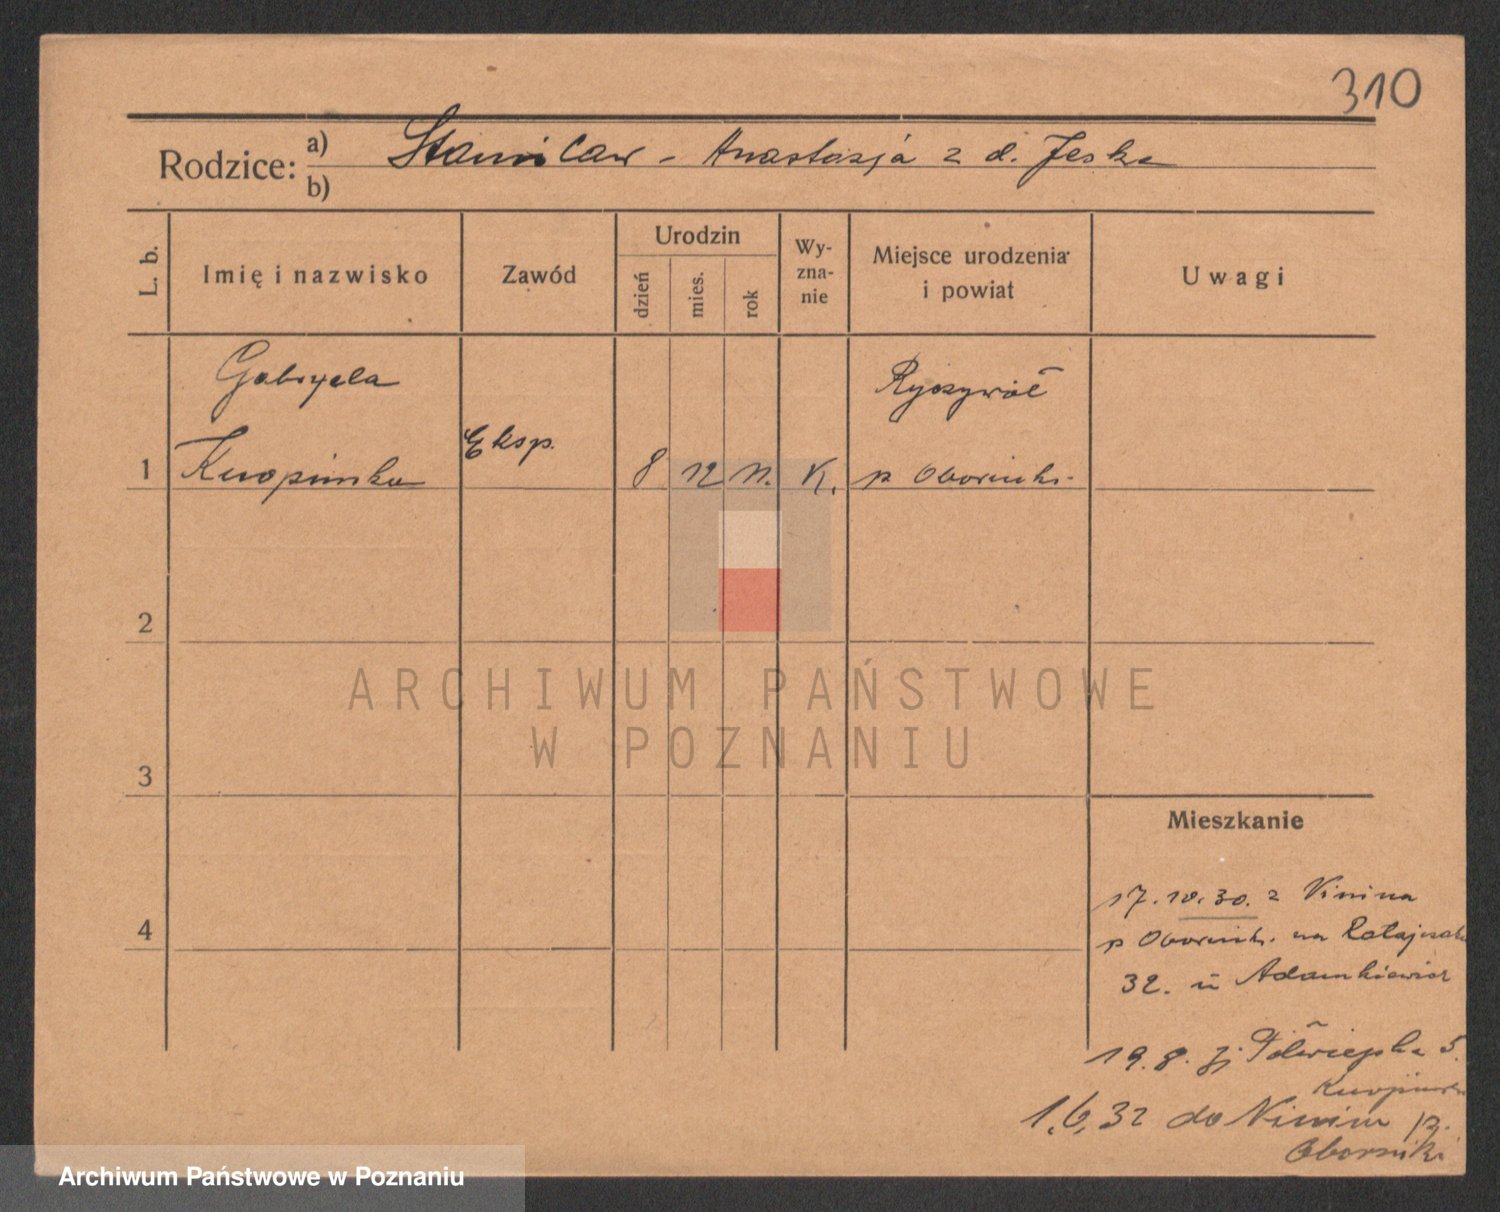 310
Rodzice: a) Stanisław - Anastazja z d. Jeska
b)
L. b. Imię i nazwisko Zawód Urodzin dzień mies. rok Wyznanie Miejsce urodzenia i powiat Uwagi
Gabryela Ryczywół
1 Eksp. 8 12 11. K. p Obornik.
2
3
4
ARCHIWUM PAŃSTWOWE
W POZNANIU
Mieszkanie
17.10.30. z Ninina
p Obornik. na Ratajczaka
32. u Adamkiewicz
19.8. 31 Półwiejska 5.
1.6.32 do Ninina p.
Oborniki
Archiwum Państwowe w Poznaniu